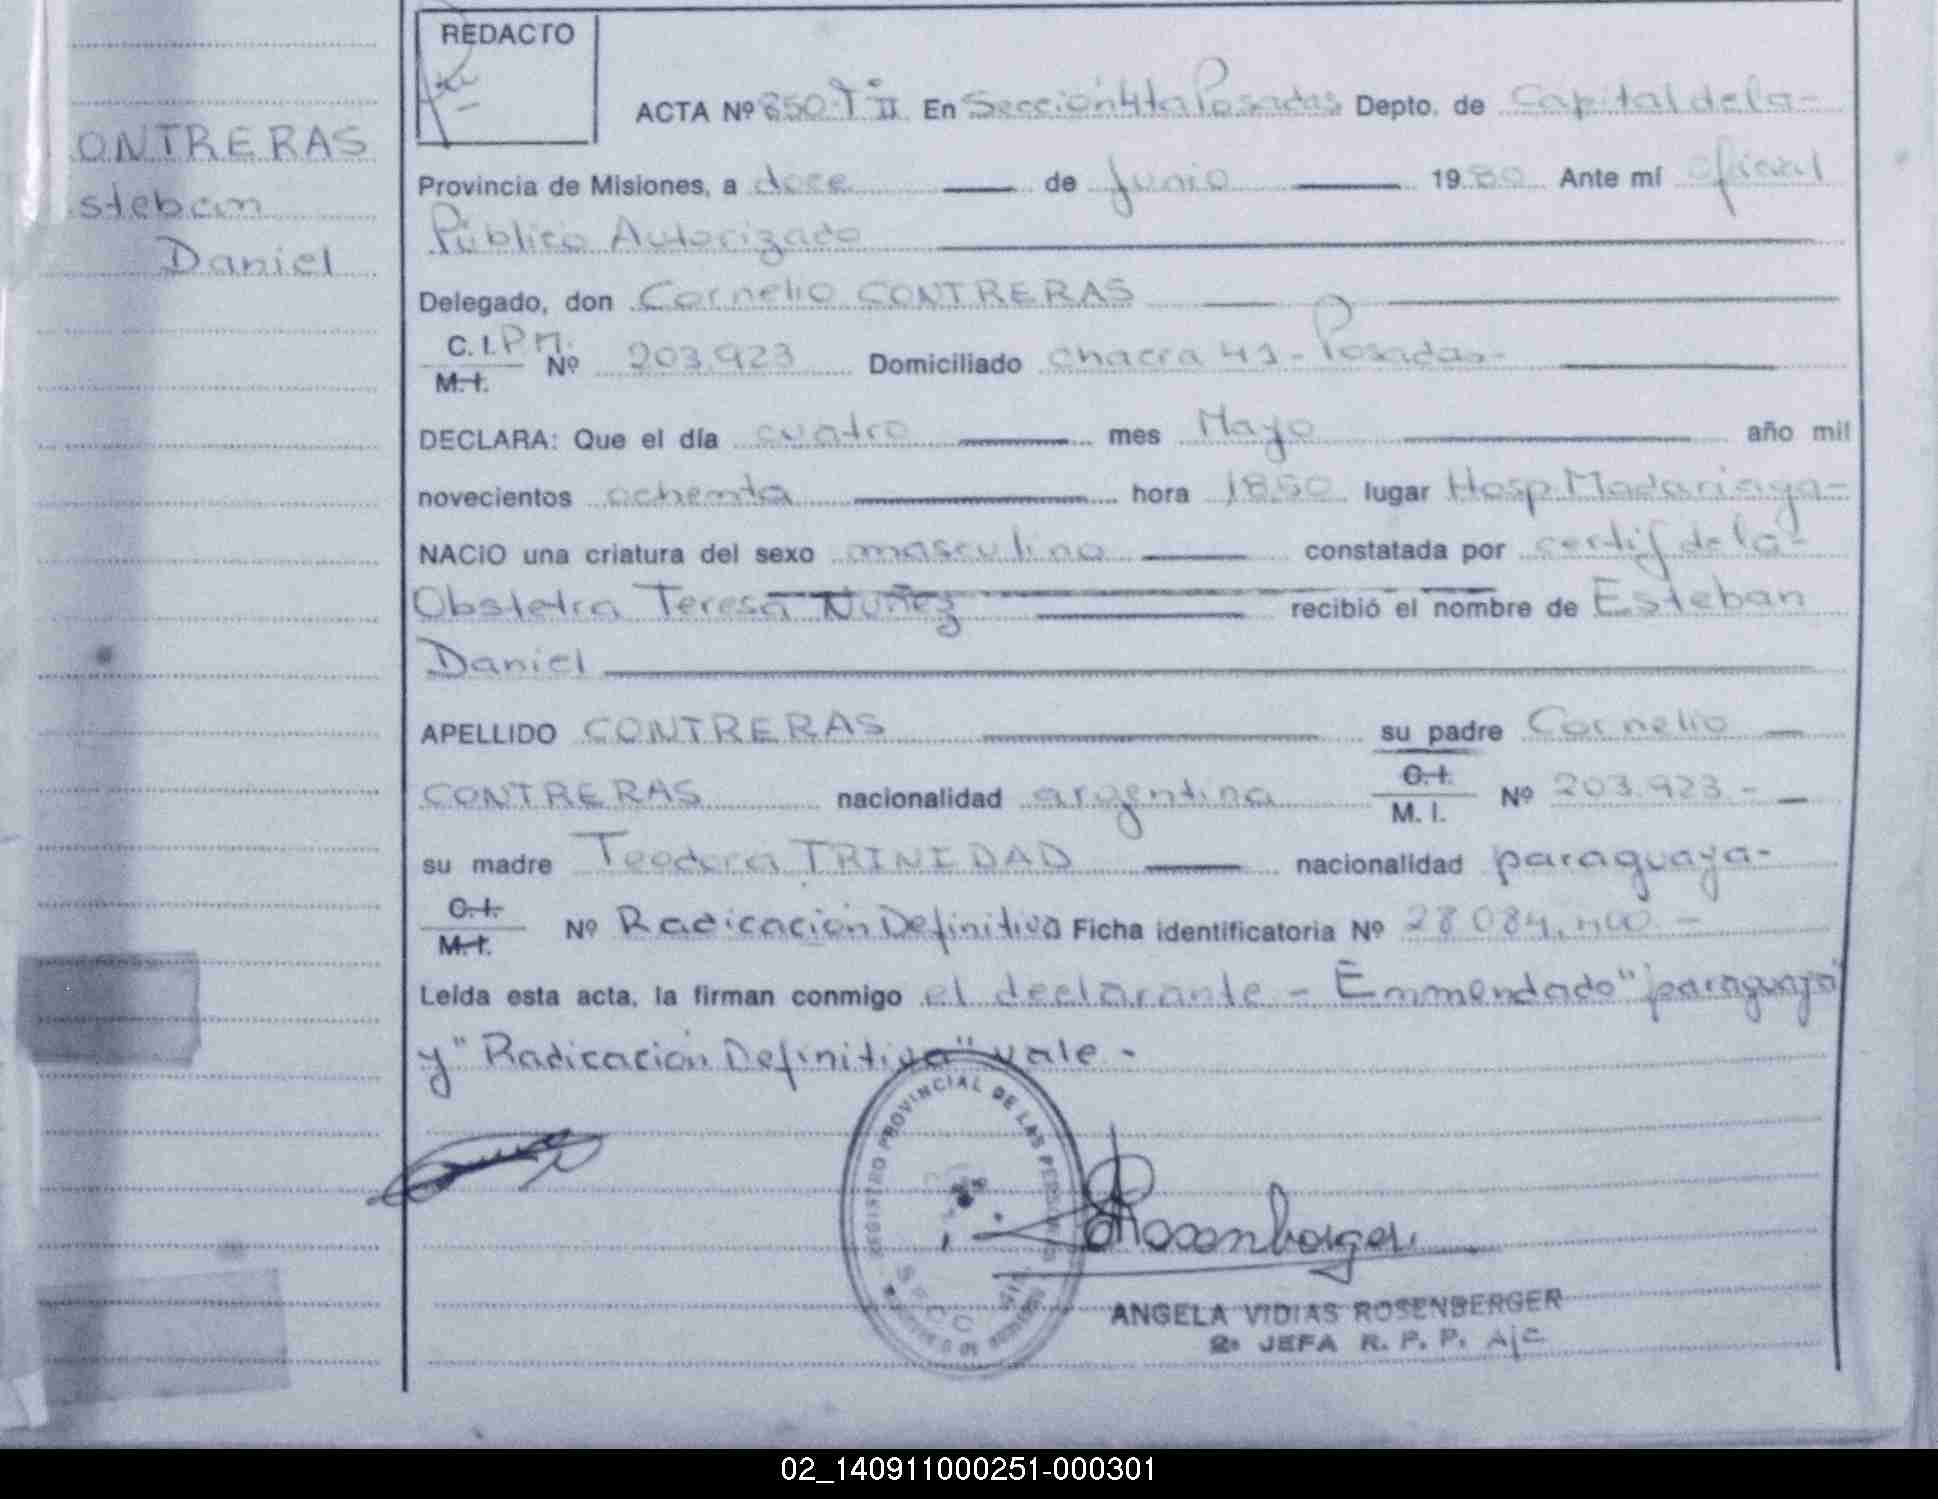 REDACTO
ACTA Nº 850 T II En Sección 4ta Posadas Depto. de Capital de la-
ONTRERAS
steban
Daniel
Provincia de Misiones, a doce de Junio 1980 Ante mí oficial
Público Autorizado
Delegado, don Cornelio CONTRERAS
C. I. P M.
M. I.
Nº 203.923 Domiciliado chacra 41 - Posadas-
DECLARA: Que el día cuatro mes Mayo año mil
novecientos ochenta hora 18.50 lugar Hosp. Madariaga-
NACIO una criatura del sexo masculino constatada por certif de la-
Obstetra Teresa Nuñez recibió el nombre de Esteban
Daniel
APELLIDO CONTRERAS su padre Cornelio
CONTRERAS nacionalidad argentina C. I. M. I. Nº 203.923.-
su madre Teodora TRINIDAD nacionalidad paraguaya-
C. I.
M. I.
Nº Radicación Definitiva Ficha identificatoria Nº 28 084.
Leída esta acta, la firman conmigo el declarante - Emmendado "paraguaya"
y "Radicación Definitiva" vale -
REGISTRO PROVINCIAL DE LAS PERSONAS
SECC
Rosenberger
ANGELA VIDIAS ROSENBERGER
2º JEFA R. P. P. A/C
02_140911000251-000301